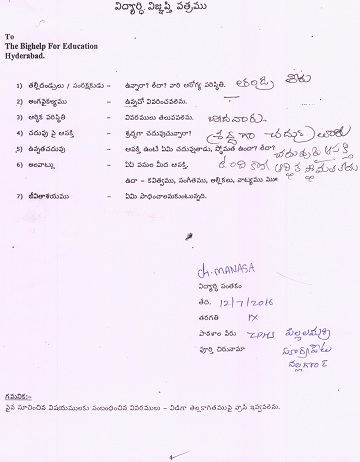 విద్యార్థి విజ్ఞప్తి పత్రము
To
The Bighelp For Education
Hyderabad.
1) తల్లిదండ్రులు / సంరక్షకుడు - ఉన్నారా? లేరా? వారి ఆరోగ్య పరిస్థితి. తండ్రి లేరు
2) అంగవైకల్యము - ఉన్నచో వివరించవలెను.
3) ఆర్థిక పరిస్థితి - వివరములు తెలుపవలెను.
4) చదువు పై ఆసక్తి - శ్రద్ధగా చదువుచున్నారా? శ్రద్ధగా
5) ఉన్నతచదువు - ఆసక్తి ఉంటే ఏమి చదువుతాడు, స్తోమత ఉందా? లేదా? ఆసక్తి
6) అలవాట్లు - ఏఏ పనుల మీద ఆసక్తి. ఉంది కానీ ఆర్థిక
ఉదా - కవిత్వము, సంగీతము, అల్లికలు, వాక్యము
7) జీవితాశయము - ఏమి సాధించాలనుకుంటున్నది.
ch. MANASA
విద్యార్థి సంతకం
తేది. 12/7/2016
తరగతి IX
పాఠశాల పేరు ZPHS పిల్లలమర్రి
పూర్తి చిరునామా సూర్యాపేట
నల్లగొండ
గమనిక:-
పైన సూచించిన విషయములకు సంబంధించిన వివరములు - విడిగా తెల్లకాగితముపై వ్రాసి ఇవ్వవలెను.